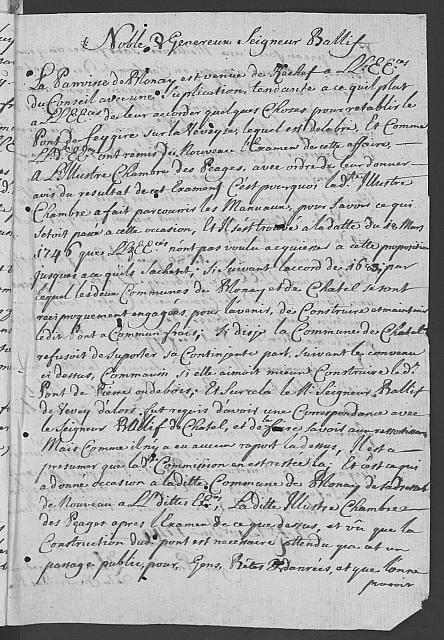 Noble & Genereux Seigneur Ballif.
La Paroisse de Blonay est venue de Rechef a LL: EE:ces
du Conseil avec une Suplication, tendante a ce quil plut
a LL: EE:ces de leur accorder quelques Choses pour retablir le
Pont de Feygire sur la Veveyse, lequel est delabré, Et Comme
LL: EE:ces ont remis de Nouveau l'Examen de cette affaire,
A L'Illustre Chambre des Peages, avec ordre de leur donner
avis du resultat de cet Examen; C'est pourquoi lad:te Illustre
Chambre a fait parcourir les Manuaux, pour savoir ce qui
setoit passé a cette occasion, Et Il s'est trouvé a la datte du 12 Mars
1746 que LL: EE:ces n'ont pas voulu acquiescer a cette proposition
jusques a ce quils sachent, Si suivant l'accord de 1683, par
lequel les deux Communes de Blonay et de Chatel se sont
reciproquement engagées pour l'avenir, de Construire et maintenir
ledit Pont a Commun frais; Si disje la Commune de Chatel
refusoit de Suporter sa Contingente part, Suivant le convenu
ci dessus, Comm aussi si elle aimoit mieux Construire led:t
Pont de Pierre ou de bois; Et Sur cela le M: Seigneur Ballif
de Vevey d'alors, fut requis d'avoir une Correspondance avec
le Seigneur Ballif de Chatel, et de faire savoir aux
Mais Comme il ny a eu aucun raport la dessus, Il est a
presumer que lad:te Commission en est restée la; Et cest ce qui
a donné occasion a laditte Commune de Blonay de
de Nouveau a LL: dittes EE:ces, La ditte Illustre Chambre
des Peages apres l'Examen de ce que dessus, et vû que la
Construction dud: pont est necessaire attendu que cest un
passage public, pour Gens, Betes & danrées, et que l'on ne
pouvoir